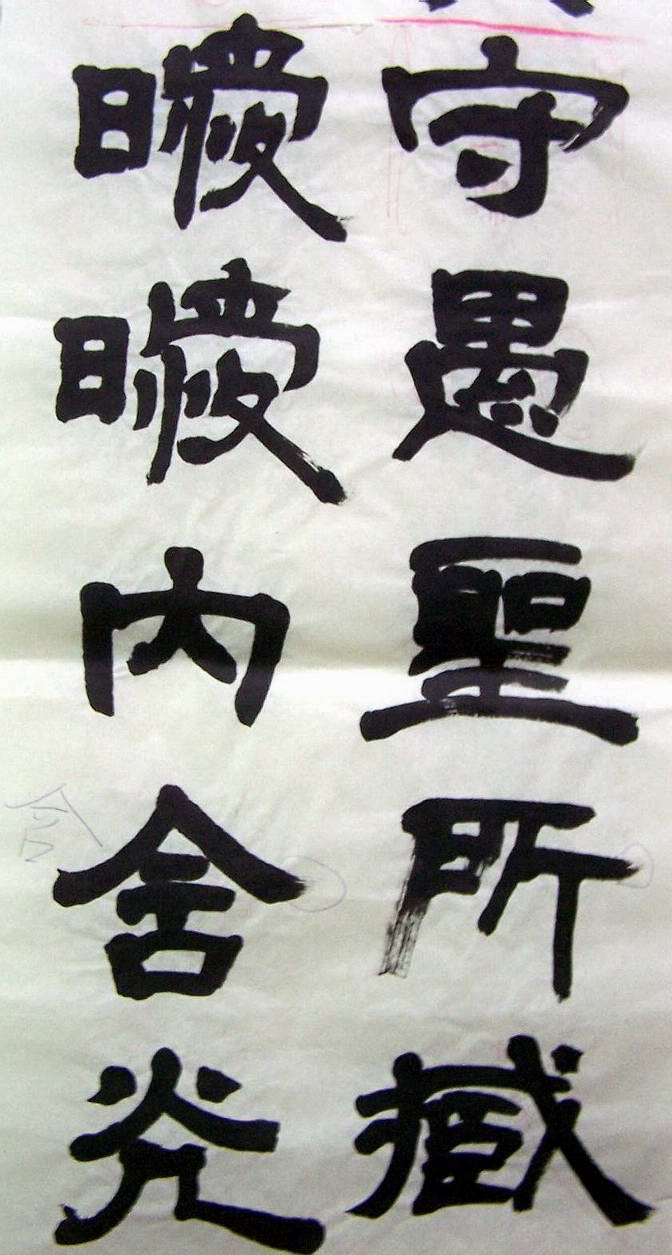 守愚聖所臧
曖曖内含光
含